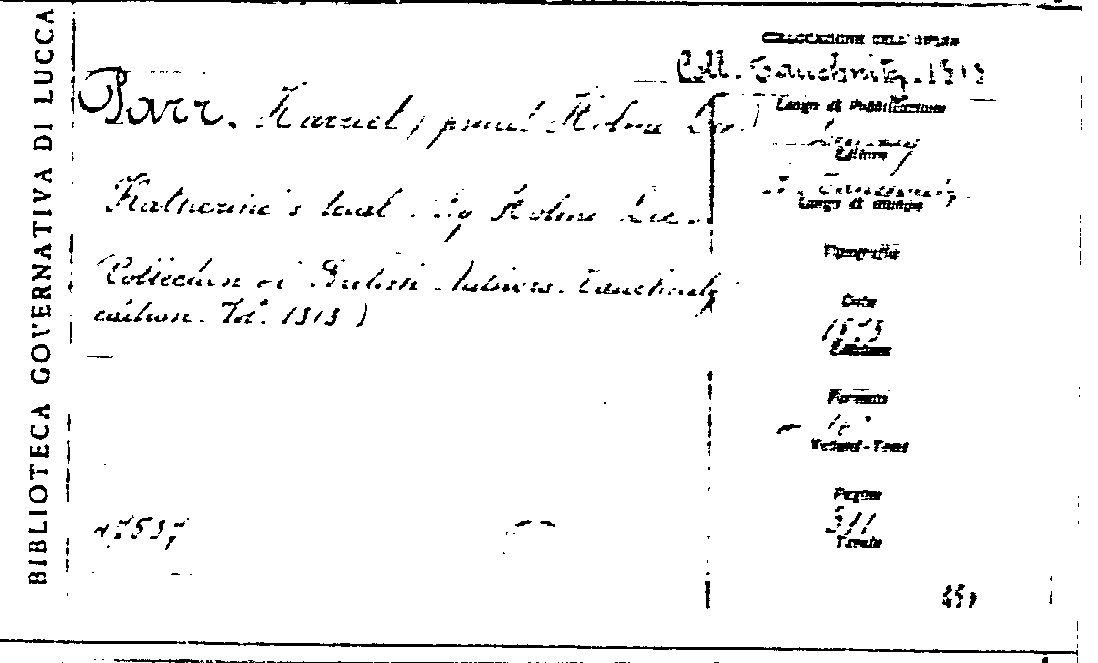 BIBLIOTECA GOVERNATIVA DI LUCCA
COLLOCAZIONE DELL'OPERA
Coll. Tauchnitz. 1313
Parr. Harriet (pseud. Holme Lee)
Luogo di Pubblicazione
Editore
Katherine's trial. By Holme Lee.
Luogo di stampa
Tipografia
Collection of British Authors. Tauchnitz
edition. Vol. 1313)
Data
1873
Edizione
Formato
16°
Volumi-Tomi
Pagine
311
Tavole